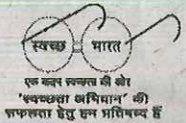 स्वच्छ भारत
एक कदम स्वच्छता की ओर
'स्वच्छता अभियान' की
सफलता हेतु हम प्रतिबद्ध हैं